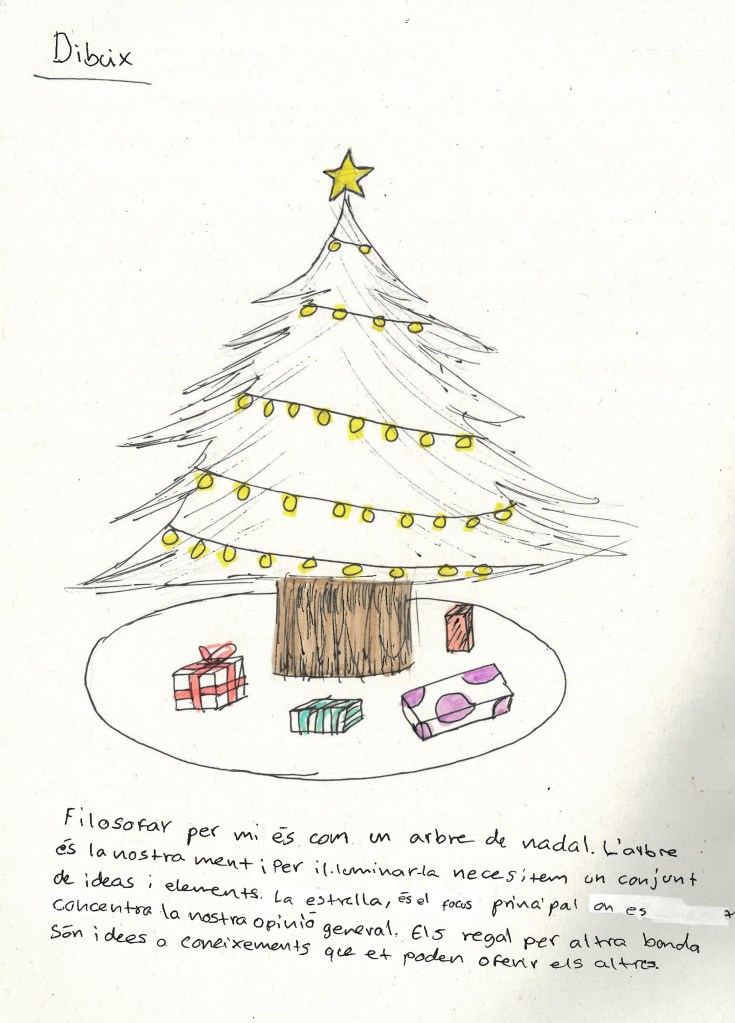 Dibuix
Filosofar per mi és com un arbre de nadal. L'arbre
és la nostra ment i per il·luminar-la necessitem un conjunt
de ideas i elements. La estrella, és el focus principal on es
concentra la nostra opinió general. Els regal per altra banda
Són idees o coneixements que et poden oferir els altres.